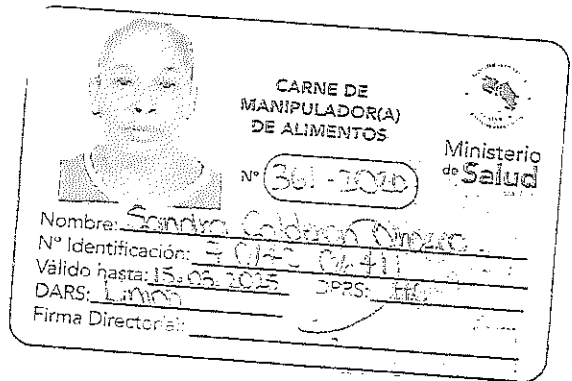 CARNE DE
MANIPULADOR(A)
DE ALIMENTOS
Ministerio
de Salud
N° 361-2020
Nombre: Sandra Calderon Orozco
N° Identificación: 7 0142
Válido hasta: 15.05.2025 DPRS:
DARS: Limon
Firma Director(a):